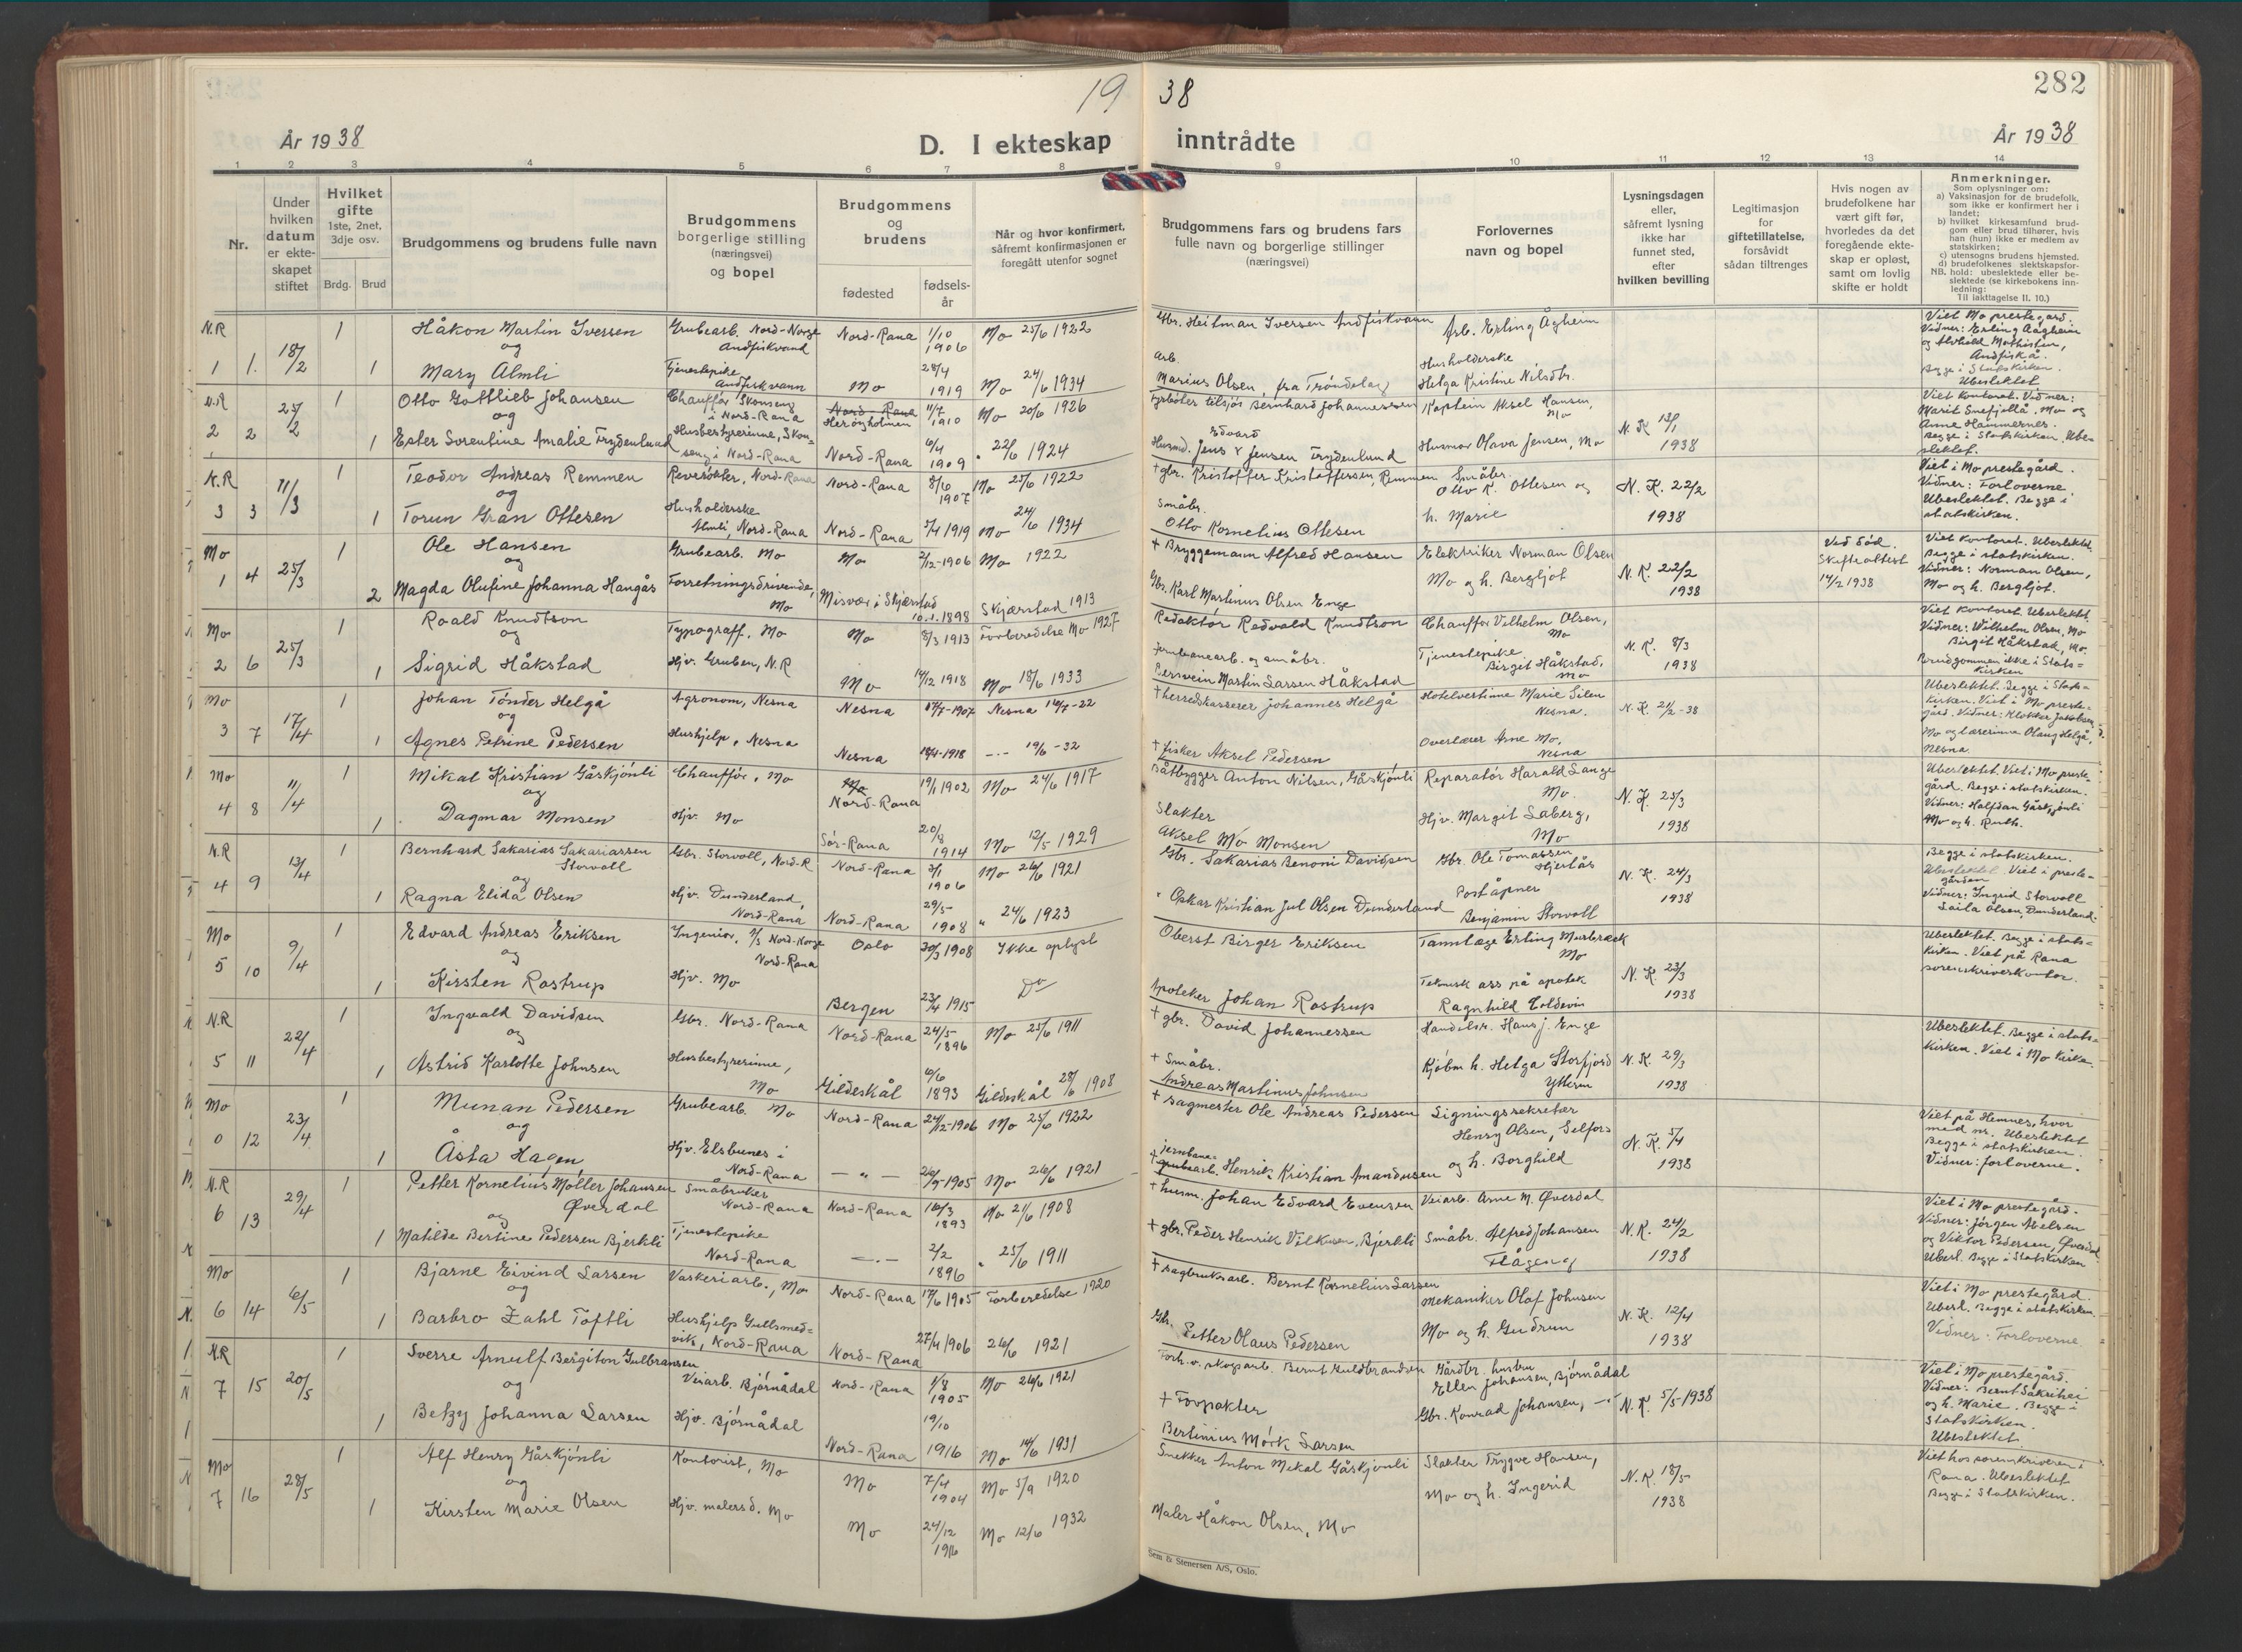 19 38
282
År 1938
D. I ekteskap inntrådte
År 1938
1 2 3 4 5 6 7 8 9 10 11 12 13 14
Nr.
Under hvilken datum er ekteskapet stiftet
Hvilket gifte
1ste, 2net, 3dje osv.
Brdg. Brud
Brudgommens og brudens fulle navn
Brudgommens borgerlige stilling
(næringsvei)
og bopel
Brudgommens og brudens
fødested
fødselsår
Når og hvor konfirmert,
såfremt konfirmasjonen er
foregått utenfor sognet
Brudgommens fars og brudens fars
fulle navn og borgerlige stillinger
(næringsvei)
Forlovernes
navn og bopel
Lysningsdagen
eller,
såfremt lysning
ikke har
funnet sted,
efter
hvilken bevilling
Legitimasjon
for
giftetillatelse,
forsåvidt
sådan tiltrenges
Hvis nogen av
brudefolkene har
vært gift før,
hvorledes da det
foregående ekte-
skap er opløst,
samt om lovlig
skifte er holdt
Anmerkninger.
Som oplysninger om:
a) Vaksinasjon for de brudefolk,
som ikke er konfirmert her i
landet;
b) hvilket kirkesamfund brud-
gom eller brud tilhører, hvis
han (hun) ikke er medlem av
statskirken;
c) utensogns brudens hjemsted.
d) brudefolkenes slektskapsfor-
NB. hold: ubeslektede eller be-
slektede (se kirkebokens inn-
ledning:
Til iakttagelse II. 10.)
N.R 1 1. 18/2 1 Håkon Martin Iversen Grubearb. Nord-Norge Andfiskvand Nord-Rana 1/10 1906 Mo 25/6 1922 Gbr. Heitman Iversen Andfiskvann Arb. Erling Ågheim
og
1 Mary Almli Tjenestepike Andfiskvann Mo 28/4 1919 Mo 24/6 1934 Arb. Marius Olsen, fra Trøndelag Husholderske Helga Kristine Nilsdtr.
Viet Mo prestegård.
Vidner: Erling Aagheim
og Alvhild Mathisen,
Andfiskå.
Begge i Statskirken.
Ubeslektet
N.R 2 2 25/2 1 Otto Gottlieb Johansen Chauffør Skonseng i Nord-Rana Nord-Rana Herøyholmen 11/7 1910 Mo 20/6 1926 Fyrbøter tilsjøs Bernhard Johannessen Kaptein Aksel Hansen, Mo
og
1 Ester Sorentine Amalie Frydenlund Husbestyrerinne, Skonseng i Nord-Rana Nord-Rana 6/4 1909 " 22/6 1924 Husmd. Jens Edvard Jensen Frydenlund Husmor Olava Jensen, Mo N.K 13/1 1938
Viet Kontoret. Vidner:
Marit Snefjellå, Mo og
Anne Hammernes.
Begge i Statskirken. Ube-
slektet.
N.R 3 3 11/3 1 Teodor Andreas Remmen Revesøkter, Nord-Rana Nord-Rana 8/6 1907 Mo 25/6 1922 + gbr. Kristoffer Kristoffersen, Remmen Småbr. Otto K. Ottesen og
og
1 Torun Gran Ottesen Husholderske Almli, Nord-Rana Nord-Rana 5/4 1919 Mo 24/6 1934 Småbr. Otto Kornelius Ottesen h. Marie N.K. 22/2 1938
Viet i Mo prestegård.
Vidner: Forloverne
Ubeslektet. Begge i
statskirken.
Mo 1 4 25/3 1 Ole Hansen Grubearb. Mo Mo 2/12-1906 Mo 1922 + Bryggemann Alfred Hansen Elektriker Norman Olsen
og
2 Magda Olufine Johanna Hangås Forretningsdrivende, Mo Misvær i Skjerstad 10.1.1898 Skjærstad 1913 Gbr. Karl Martinus Olsen Enge Mo og h. Bergljot N.K. 22/2 1938 Ved død. Skifteattest 14/2 1938
Viet Kontoret. Ubeslektet.
Begge i statskirken.
Vidner: Norman Olsen,
Mo og h. Bergljot.
Mo 2 6 25/3 1 Roald Knudtson Typograff, Mo Mo 8/3 1913 Forberedelse Mo 1927 Redaktør Redvald Knudtson Chauffør Vilhelm Olsen, Mo
og
1 Sigrid Håkstad Hjv. Gruben, N.R Mo 14/12 1918 Mo 18/6 1933 Jernbanearb. og småbr. Bersvein Martin Larsen Håkstad Tjenestepike Birgit Håkstad, Mo N.K. 8/3 1938
Viet Kontoret. Ubeslektet.
Vidner: Wilhelm Olsen, Mo
Birgit Håkstad, Mo.
Brudgommen ikke i Stats=
kirken
Mo 3 7 17/4 1 Johan Tønder Helgå Agronom, Nesna Nesna 17/7-1907 Nesna 16/7-22 + herredskasserer Johannes Helgå Hotelvertinne Marie Silen Nesna.
og
1 Agnes Petrine Pedersen Hushjelp, Nesna Nesna 18/4-1918 -"- 19/6-32 + fisker Aksel Pedersen Overlærer Arne Mo, Nesna N.K. 21/2-38
Ubeslektet. Begge i Stats=
kirken. Viet i Mo preste-
gård. Vidner: Klokker Jakobsen
Mo og lærerinne Olaug Helgå,
Nesna.
Mo 4 8 11/4 1 Mikal Kristian Gåskjønli Chauffør, Mo Mo Nord-Rana 19/1 1902 Mo 24/6 1917 Båtbygger Anton Nilsen, Gåskjønli Reparatør Harald Lange Mo.
og
1 Dagmar Monsen Hjv. Mo Sør-Rana 20/8 1914 Mo 12/5 1929 Slakter Aksel Mo Monsen Hjv. Margit Laberg, Mo N.K. 25/3 1938
Ubeslektet. Viet i Mo preste-
gård. Begge i statskirken.
Vidner: Halfdan Gåskjønli
Mo og h. Ruth.
N.R 4 9 13/4 1 Bernhard Sakarias Sakariassen Storvoll Gbr. Storvoll, Nord-R Nord-Rana 3/1 1906 Mo 26/6 1921 Gbr. Sakarias Benoni Davidsen Gbr. Ole Tomassen Hjertås
og
1 Ragna Elida Olsen Hjv. Dunderland, Nord-Rana Nord-Rana 29/5 1908 " 24/6 1923 " Oskar Kristian Jul Olsen Dunderland Poståpner Benjamin Storvoll N.K. 24/3 1938
Begge i statskirken.
Ubeslektet. Viet i preste-
gården
Vidner: Ingrid Storvoll
Laila Olsen, Dunderland.
Mo 5 10 9/4 1 Edvard Andreas Eriksen Ingeniør, A/S Nord-Norge Nord-Rana Oslo 30/3 1908 Ikke oplyst Oberst Birger Eriksen Tannlæge Erling Murbræck Mo
og
1 Kirsten Rostrup Hjv. Mo Bergen 23/4 1915 Do Apoteker Johan Rostrup Teknisk ass på apotek Ragnhild Coldevin N.K. 23/3 1938
Ubeslektet. Begge i stats-
kirken. Viet på Rana
sorenskriverkontor.
N.R 5 11 22/4 1 Ingvald Davidsen Gbr. Nord-Rana Nord-Rana 24/5 1896 Mo 25/6 1911 + gbr. David Johannessen Handelsr. Hans J. Enge
og
1 Astrid Karlotte Johnsen Husbestyrerinne, Mo Gildeskål 6/6 1893 Gildeskål 28/6 1908 + Småbr. Andreas Martinus Johnsen Kjøbm h. Helga Storfjord Ytteren N.K. 29/3 1938
Ubeslektet. Begge i stats=
kirken. Viet i Mo kirke.
Mo 0 12 23/4 1 Munan Pedersen Grubearb. Mo Nord-Rana 24/12-1906 Mo 25/6 1922 + Sagmester Ole Andreas Pedersen Ligningssekretær Henry Olsen, Selfors
og
1 Åsta Hagen Hjv. Elsbunes i Nord-Rana -"- 26/9-1905 Mo 26/6 1921 + jernbane- grubearb. Henrik Kristian Amandusen og h. Borghild N.K. 5/4 1938
Viet på Hemnes, hvor
med nr. Ubeslektet
Begge i statskirken.
Vidner: forloverne.
N.R 6 13 29/4 1 Petter Kornelius Møller Johansen Øverdal Småbruker Nord-Rana Nord-Rana 16/3 1893 Mo 21/6 1908 + husm. Johan Edvard Evensen Veiarb. Arne M. Øverdal
og
1 Matilde Bertine Pedersen Bjerkli Tjenestepike Nord-Rana -"- 2/2 1896 " 25/6 1911 + gbr. Peder Henrik Vilksen, Bjerkli Småbr. Alfred Johansen Flågeng N.K. 24/2 1938
Viet i Mo prestegård.
Vidner: Jørgen Nielsen
og Viktor Pedersen, Øverdal
Uberl. Begge i Statskirken
Mo 6 14 6/5 1 Bjarne Eivind Larsen Vaskeriarb., Mo Nord-Rana 17/6 1905 Forberedelse 1920 + sagbruksarb. Bernt Kornelius Larsen Mekaniker Olaf Johnsen
og
1 Barbro Zahl Toftli Hushjelp Gullsmed=vik, Nord-Rana Nord-Rana 27/4 1906 26/6 1921 Gbr. Petter Olaus Pedersen Mo og h. Gudrun N.K. 12/4 1938
Viet i Mo prestegård.
Uberl. Begge i statskirken.
Vidner: Forloverne
N.R 7 15 20/5 1 Sverre Arnulf Bergiton Gulbransen Veiarb. Bjørnådal Nord-Rana 1/8 1905 Mo 26/6 1921 Forh.v. skogsarb. Bernt Guldbrandsen Gårdbr. hustru Ellen Johansen, Bjørnådal
og
1 Betzy Johanna Larsen Hjv. Bjørnådal Nord-Rana 19/10 1916 Mo 14/6 1931 + Forpakter Bertinius Mørk Larsen Gbr. Konrad Johansen, -"- N.K. 5/5-1938
Viet i Mo prestegård.
Vidner: Bernt Sakrihei
og h. Marie. Begge i
Statskirken.
Ubeslektet.
Mo 7 16 28/5 1 Alf Henry Gåskjønli Kontorist, Mo Mo 7/4 1904 Mo 5/9 1920 Snekker Anton Mekal Gåskjønli Slakter Trygve Hansen,
og
1 Kirsten Marie Olsen Hjv. malersd. Mo Mo 24/12 1916 Mo 12/6 1932 Maler Håkon Olsen, Mo Mo og h. Ingerid N.K. 18/5 1938
Viet hos sorenskriveren i
Rana. Ubeslektet
Begge i Statskirken.
Sem & Stenersen A/S, Oslo.